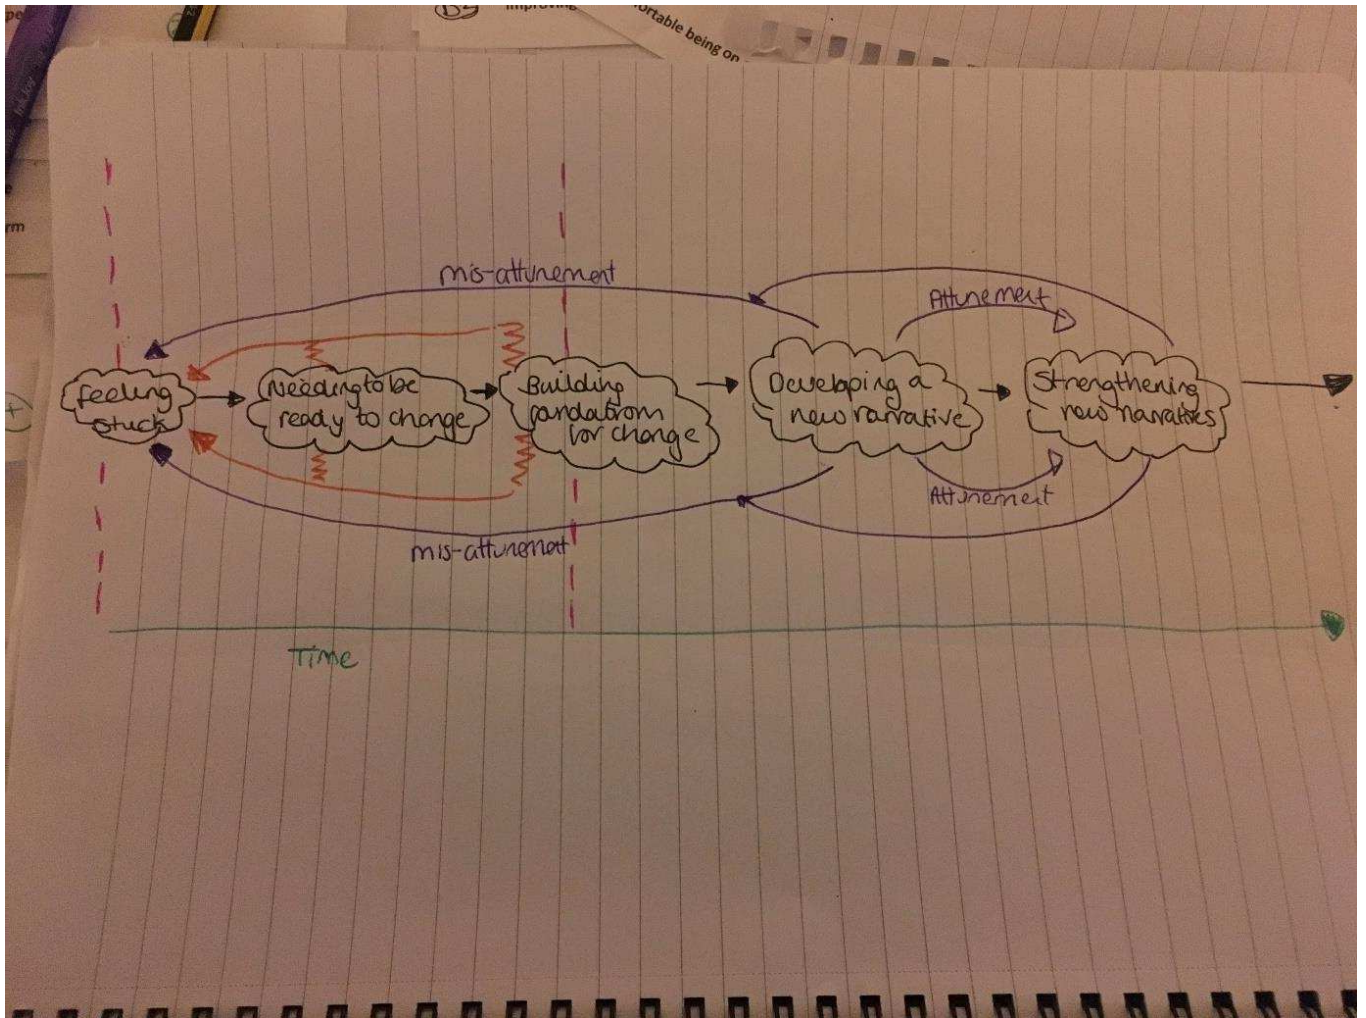 improving
ortable being on
rm
mis-attunement
Attunement
feeling
stuck
Needing to be
ready to change
Building
foundations
for change
Developing a
new narrative
Strengthening
new narratives
Attunement
mis-attunement
Time